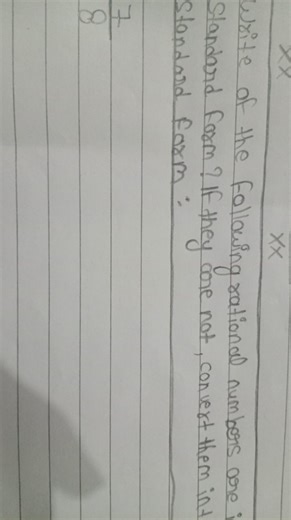 xx xx
write of the following rational numbers are i
Standard form? If they are not, convert them int
standard form:
7
8